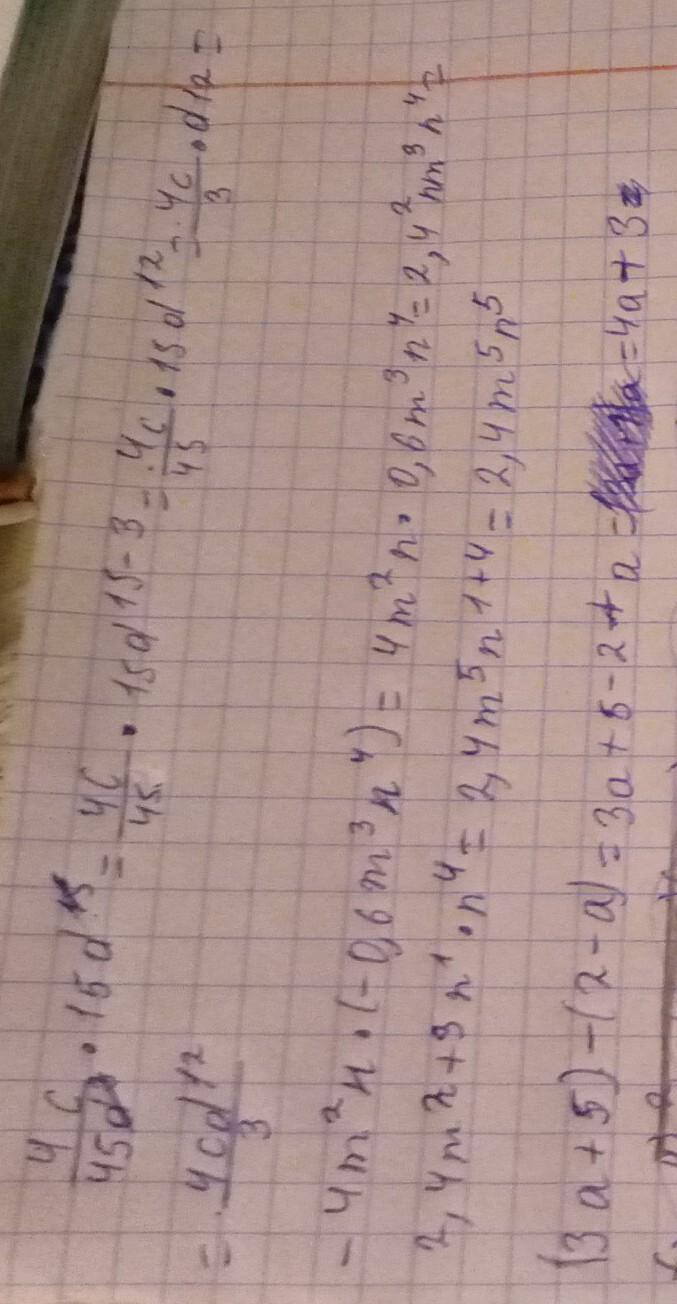 4c/45d³ · 15d¹⁵ = 4c/45 · 15d15-3 = 4c/45 · 15d¹² = 4c/3 · d12 =
= 4cd¹²/3
-4m²n·(-0,6m³n⁴) = 4m²n·0,6m³n⁴=2,4²nm³n⁴=
2,4m²+3n¹·n⁴=2,4m⁵n1+4=2,4m⁵n⁵
(3a+5)-(2-a)=3a+5-2+a=4a+3